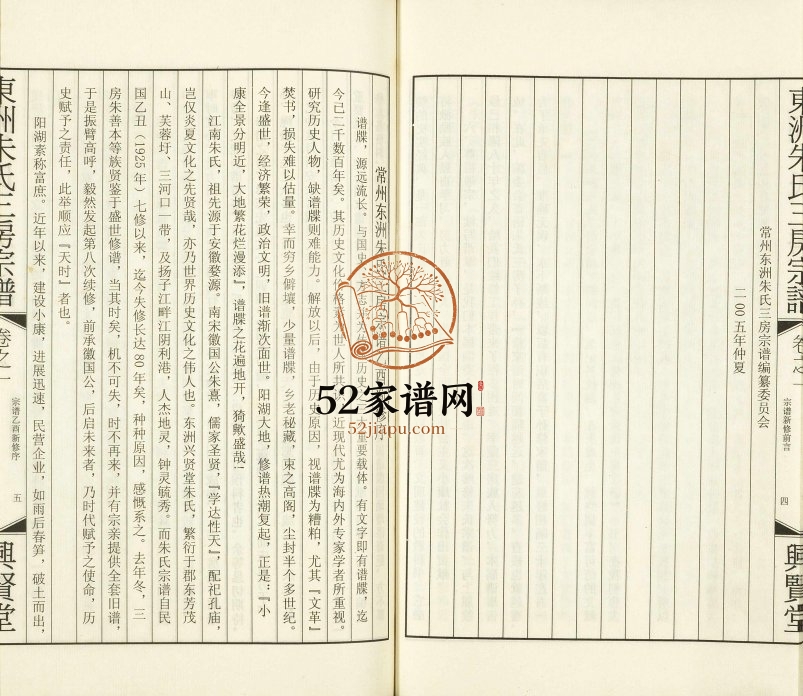 東洲朱氏三房宗譜
卷之一
宗谱新修前言
四
興賢堂
常州东洲朱氏三房宗谱编纂委员会
二00五年仲夏
常州东洲朱氏三房宗谱
序
谱牒，源远流长。与国史
重要载体。有文字即有谱牒，迄
今已二千数百年矣。其历史文化价
为世人所共
近现代尤为海内外专家学者所重视。
研究历史人物，缺谱牒则难能力。解放以后，由于历史原因，视谱牒为糟粕，尤其『文革』
焚书，损失难以估量。幸而穷乡僻壤，少量谱牒，乡老秘藏，束之高阁，尘封半个多世纪。
今逢盛世，经济繁荣，政治文明，旧谱渐次面世。阳湖大地，修谱热潮复起，正是：『小
康全景分明近，大地繁花烂漫添』，谱牒之花遍地开，猗歟盛哉！
江南朱氏，祖先源于安徽婺源。南宋徽国公朱熹，儒家圣贤，『学达性天』，配祀孔庙，
岂仅炎夏文化之先贤哉，亦乃世界历史文化之伟人也。东洲兴贤堂朱氏，繁衍于郡东芳茂
山、芙蓉圩、三河口一带，及扬子江畔江阴利港，人杰地灵，钟灵毓秀。而朱氏宗谱自民
国乙丑（1925年）七修以来，迄今失修长达80年矣，种种原因，感慨系之。去年冬，三
房朱善本等族贤鉴于盛世修谱，当其时矣，机不可失，时不再来，并有宗亲提供全套旧谱，
于是振臂高呼，毅然发起第八次续修，前承徽国公，后启未来者，乃时代赋予之使命，历
史赋予之责任，此举顺应『天时』者也。
阳湖素称富庶。近年以来，建设小康，进展迅速，民营企业，如雨后春笋，破土而出，
東洲朱氏三房宗譜
卷之一
宗谱乙酉新修序
五
興賢堂
52家谱网
52jiapu.com